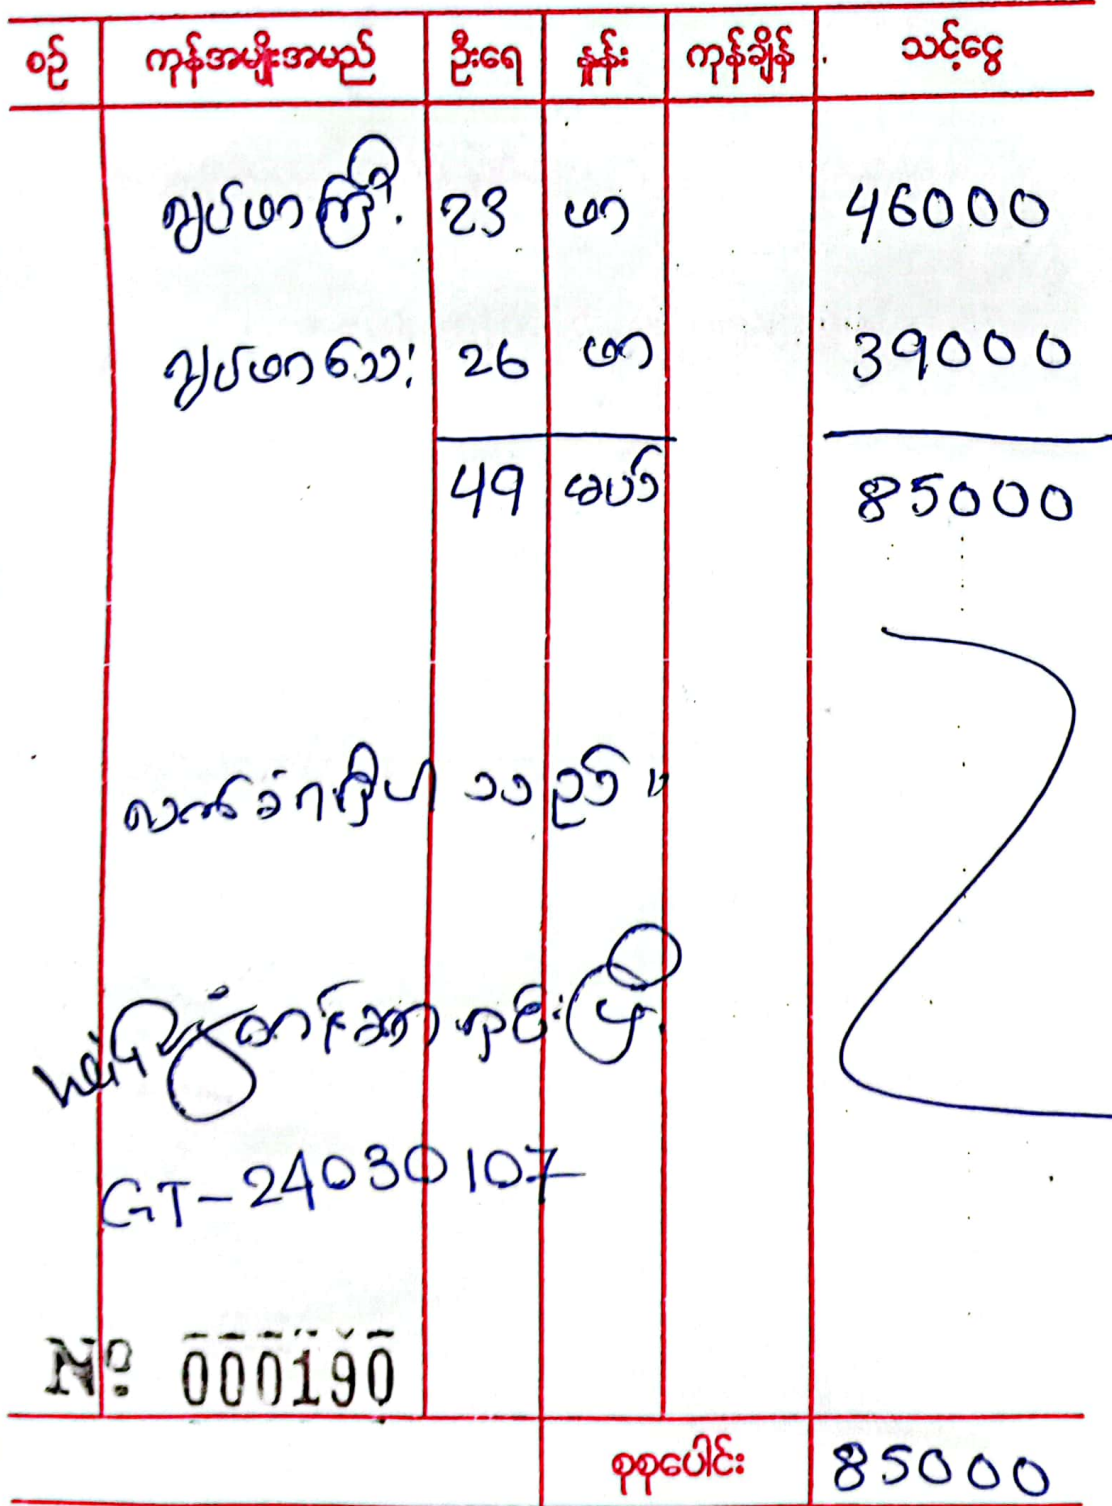 စဉ် ကုန်အမျိုးအမည် ဦးရေ နှုန်း ကုန်ချိန် သင့်ငွေ
ချပ်ဖာကြီး 23 ဖာ 46000
ချပ်ဖာသေး 26 ဖာ 39000
49 85000
လက်ခံရရှိပါသည်။
GT-24030107
Nº 000190
စုစုပေါင်း 85000